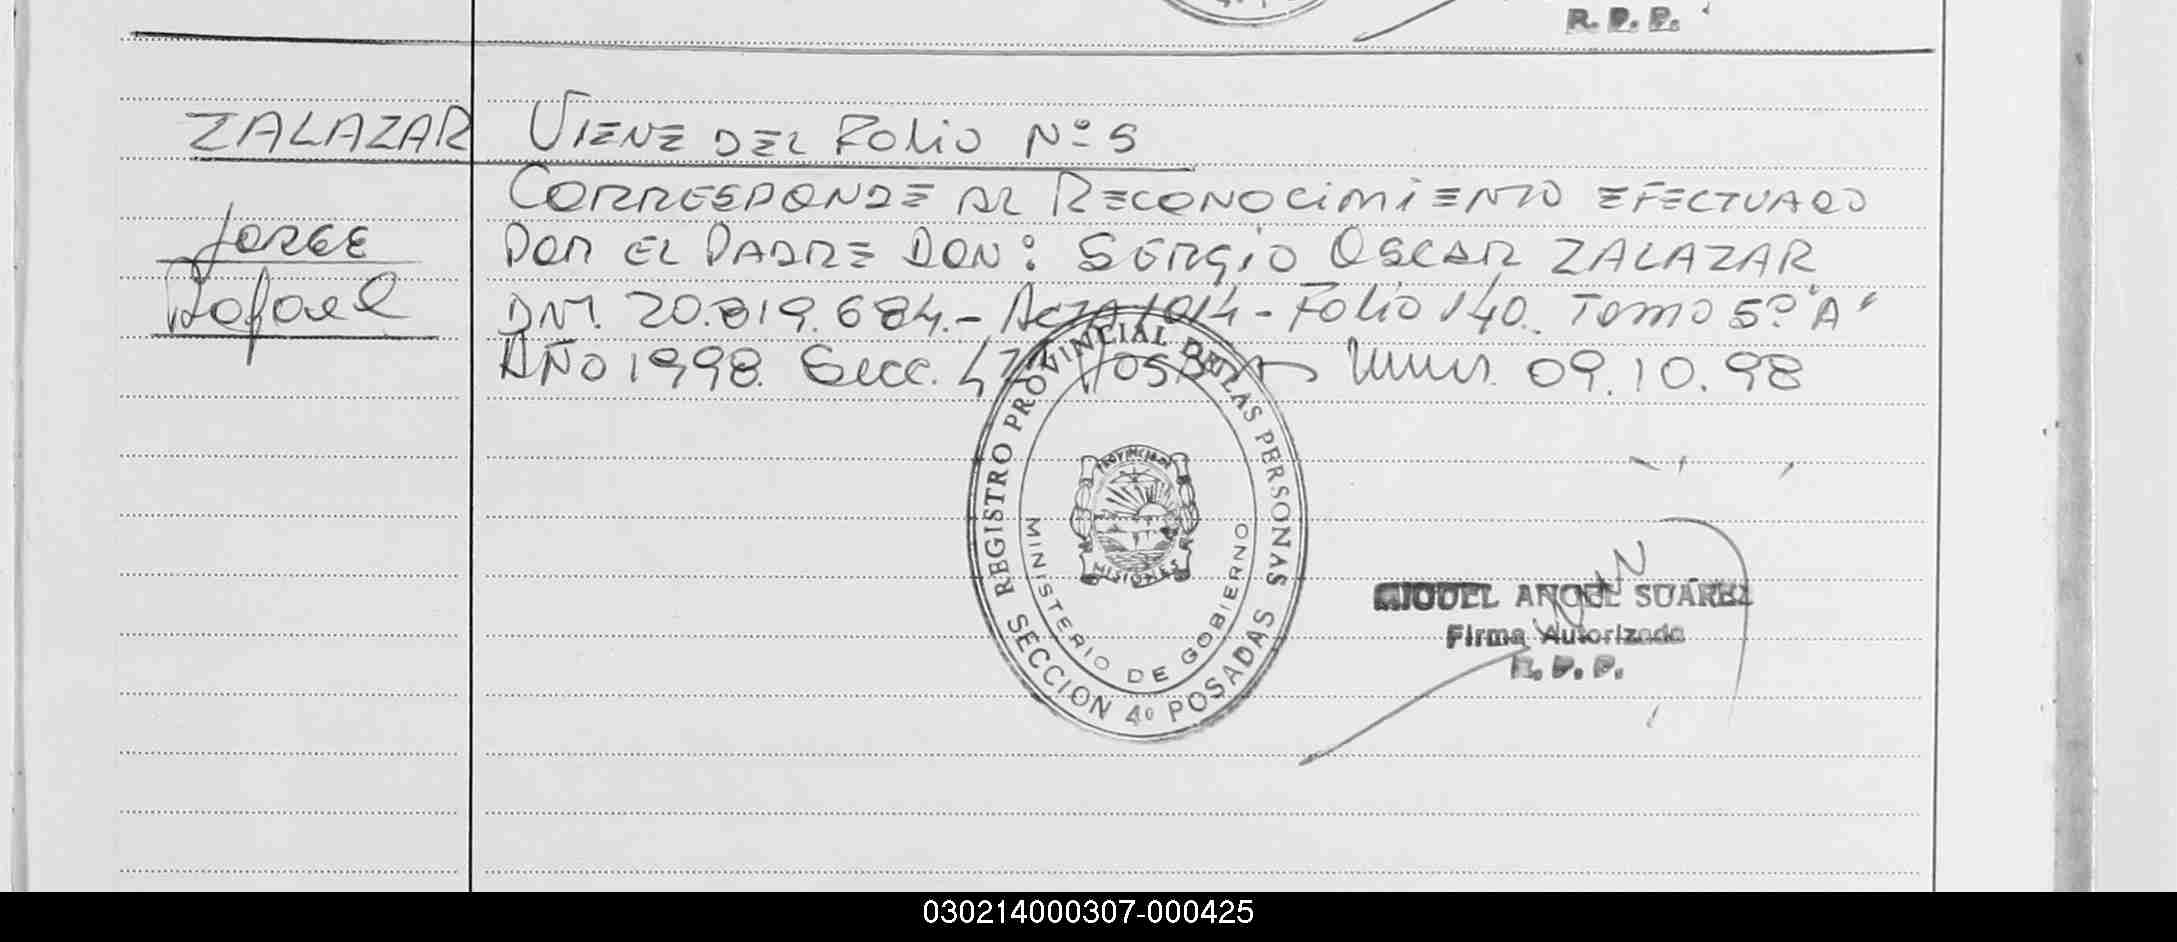 R. P. P.
ZALAZAR
Jorge
Rafael
VIENE DEL FOLIO Nº 5
CORRESPONDE AL RECONOCIMIENTO EFECTUADO
POR EL PADRE DON: SERGIO OSCAR ZALAZAR
DNI. 20.819.684.- ACTA 1014 - FOLIO 140. TOMO 5º "A"
AÑO 1998. Secc. 4ª Posadas 09.10.98
REGISTRO PROVINCIAL DE LAS PERSONAS
PROVINCIA DE
MISIONES
MINISTERIO DE GOBIERNO
SECCION 4º POSADAS
MIGUEL ANGEL SUÁREZ
Firma Autorizada
R. P. P.
030214000307-000425